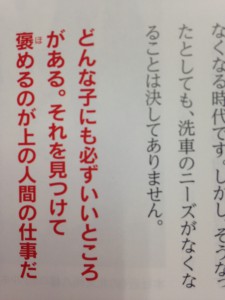 なくなる時代です。しかし、そうなっ
たとしても、洗車のニーズがなくな
ることは決してありません。
どんな子にも必ずいいところ
がある。それを見つけて
褒めるのが上の人間の仕事だ
ほ